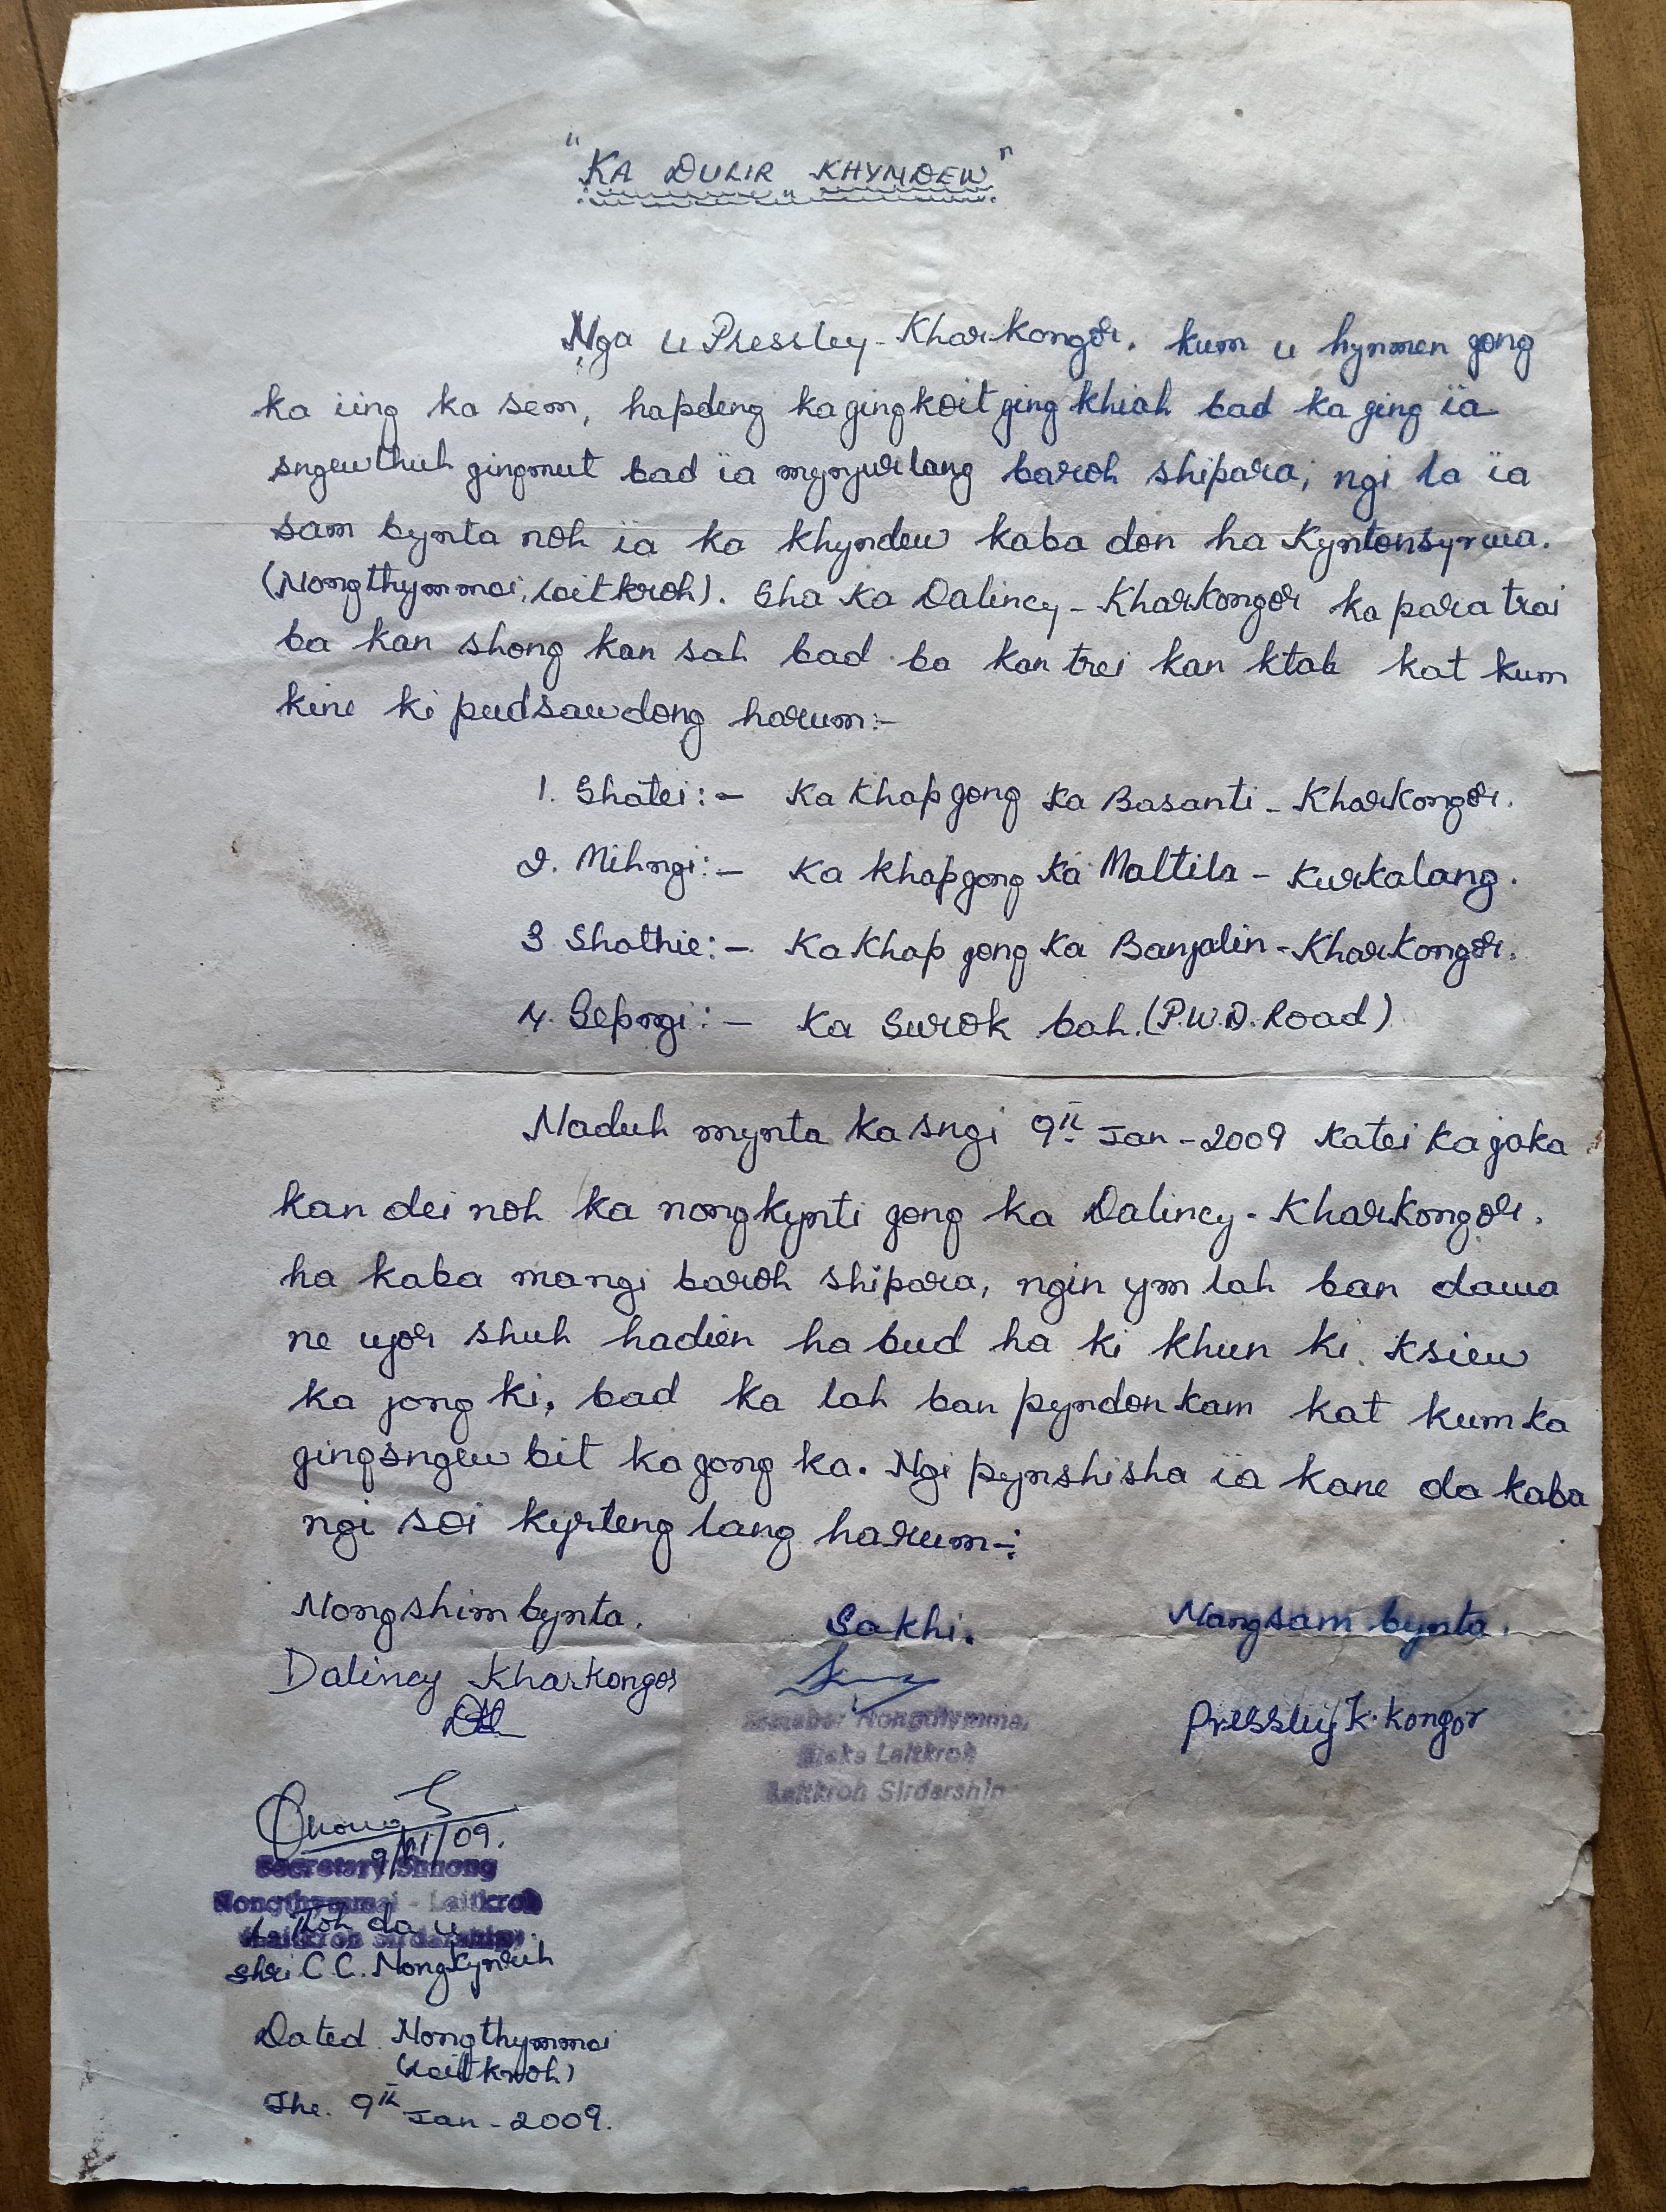 "KA DULIR KHYNDEW"
Nga u Pressley - Kharkongor. kum u hynmen jong
ka iing ka sem, hapdeng ka jingkoit jing khiah bad ka jing ïa
sngewthuh jingmut bad ïa mynjur lang baroh shipara, ngi la ïa
sam bynta noh ïa ka khyndew kaba don ha Kyntonsyrwa.
(Nongthymmai, laitkroh). Sha ka Dalincy - Kharkongor ka para trai
ba kan shong kan sah bad ba kan trei kan ktah kat kum
kine ki pudsawdong harum:-
1. Shatei:- Ka Khap jong ka Basanti - Kharkongor.
2. Mihngi:- Ka khap jong ka Maltila - Kurkalang.
3 Shathie:- Ka Khap jong ka Banjalin - Kharkongor.
4. Sepngi:- Ka Surok bah. (P.W.D. Road)
Naduh mynta ka sngi 9th Jan - 2009 Katei ka jaka
kan dei noh ka nongkynti jong ka Dalincy - Kharkongor.
ha kaba mangi baroh shipara, ngin ym lah ban dawa
ne ujor shuh hadien habud ha ki khun ki ksiew
ka jong ki, bad ka lah ban pyndonkam kat kum ka
jingsngew bit ka jong ka. Ngi pynshisha ïa kane da kaba
ngi soi kyrteng lang harum:-
Nongshim bynta. Sakhi. Nongsam bynta.
Dalincy Kharkongor
Pressley K. Kongor
Nongthymmai
Laitkroh
Laitkroh Sirdarship
9/01/09.
Secretary Shnong
Nongthymmai - Laitkroh
Laitkroh Sirdarship
La Thoh da u
Shri C. C. Nongkynrih
Dated Nongthymmai
(Laitkroh)
The. 9th Jan - 2009.